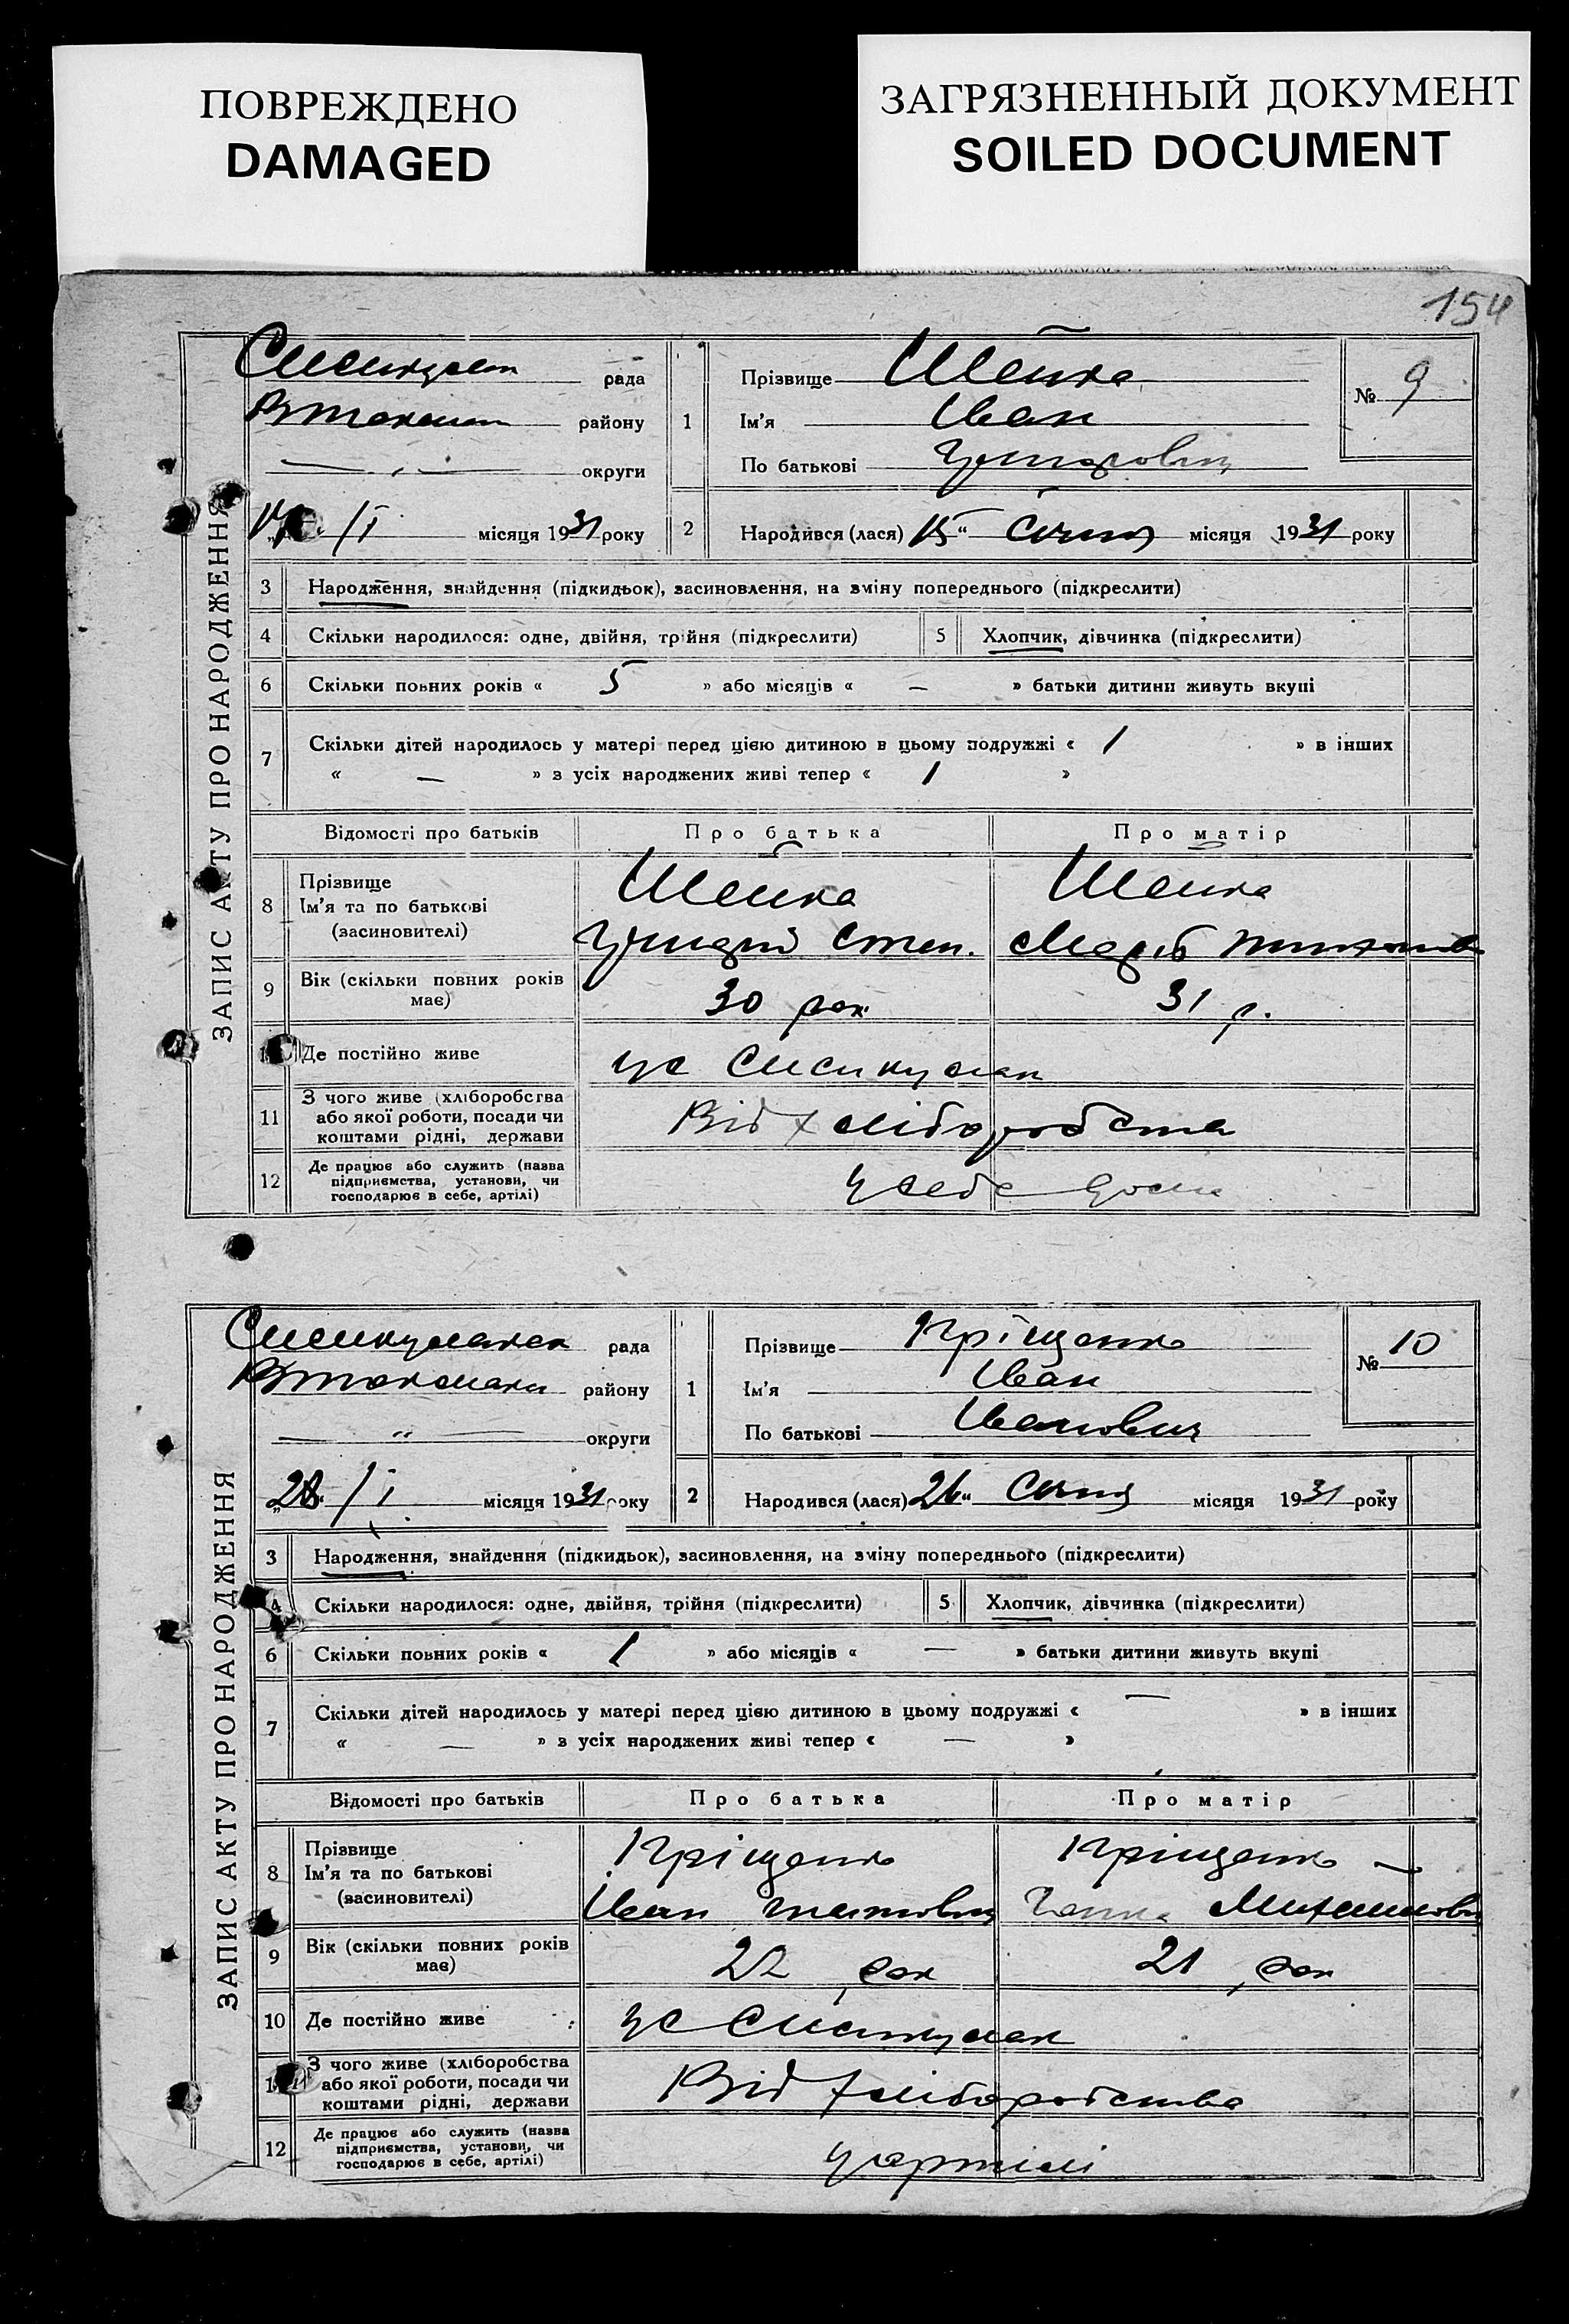 ПОВРЕЖДЕНО
DAMAGED
ЗАГРЯЗНЕННЫЙ ДОКУМЕНТ
SOILED DOCUMENT
154
ЗАПИС АКТУ ПРО НАРОДЖЕННЯ
рада
району
округи
/I місяця 1931 року
1
Прізвище
Ім'я Іван
По батькові
№ 9
2
Народився (лася) 15 " Січня місяця 1931 року
3 Народження, знайдення (підкидьок), засиновлення, на зміну попереднього (підкреслити)
4 Скільки народилося: одне, двійня, трійня (підкреслити) 5 Хлопчик, дівчинка (підкреслити)
6 Скільки повних років « 5 » або місяців « — » батьки дитини живуть вкупі
7 Скільки дітей народилось у матері перед цією дитиною в цьому подружжі « 1 » в інших
« — » з усіх народжених живі тепер « 1 »
Відомості про батьків Про батька Про матір
8 Прізвище
Ім'я та по батькові
(засиновителі)
Степ.
9 Вік (скільки повних років має) 30 рок. 31 р.
Де постійно живе
11 З чого живе (хліборобства або якої роботи, посади чи коштами рідні, держави Від хліборобства
12 Де працює або служить (назва підприємства, установи, чи господарює в себе, артілі) у себе дома
ЗАПИС АКТУ ПРО НАРОДЖЕННЯ
рада
району
— " — округи
28 " /I місяця 1931 року
1
Прізвище Кріщенко
Ім'я Іван
По батькові Іванович
№ 10
2
Народився (лася) 26 " Січня місяця 1931 року
3 Народження, знайдення (підкидьок), засиновлення, на зміну попереднього (підкреслити)
4 Скільки народилося: одне, двійня, трійня (підкреслити) 5 Хлопчик, дівчинка (підкреслити)
6 Скільки повних років « 1 » або місяців « — » батьки дитини живуть вкупі
7 Скільки дітей народилось у матері перед цією дитиною в цьому подружжі « — » в інших
« — » з усіх народжених живі тепер « — »
Відомості про батьків Про батька Про матір
8 Прізвище Кріщенко Кріщенко —
Ім'я та по батькові
(засиновителі)
Іван Ганна
9 Вік (скільки повних років має) 22 рок 21 рок
10 Де постійно живе
З чого живе (хліборобства або якої роботи, посади чи коштами рідні, держави Від хліборобства
12 Де працює або служить (назва підприємства, установи, чи господарює в себе, артілі) у артілі